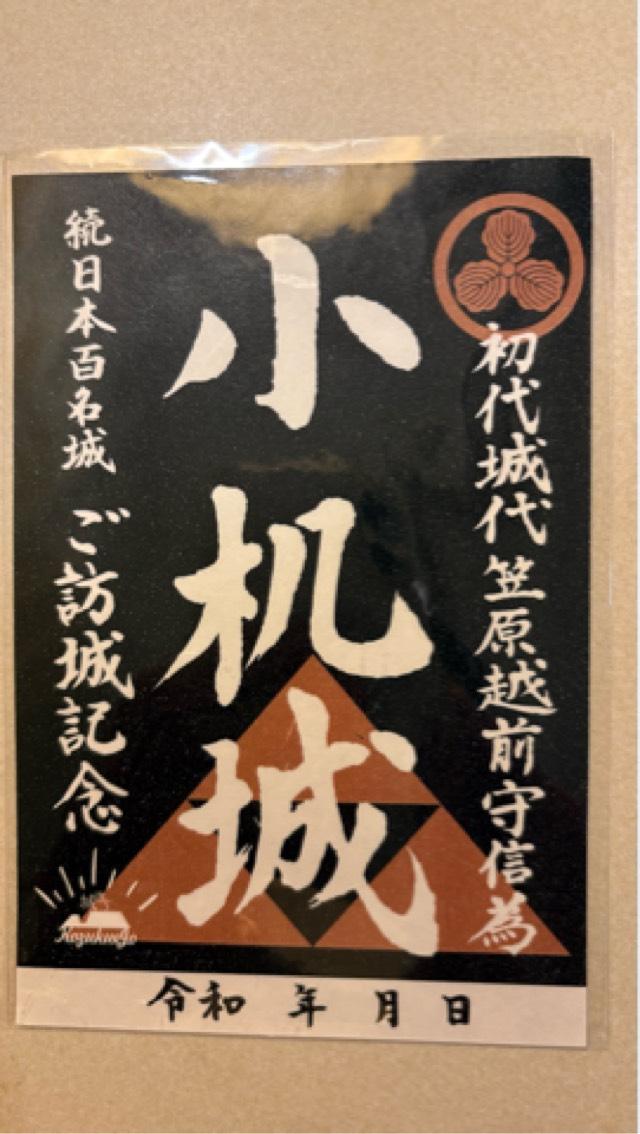 初代城代笠原越前守信為
小机城
続日本百名城 ご訪城記念
Kozukuejo
令和 年 月 日